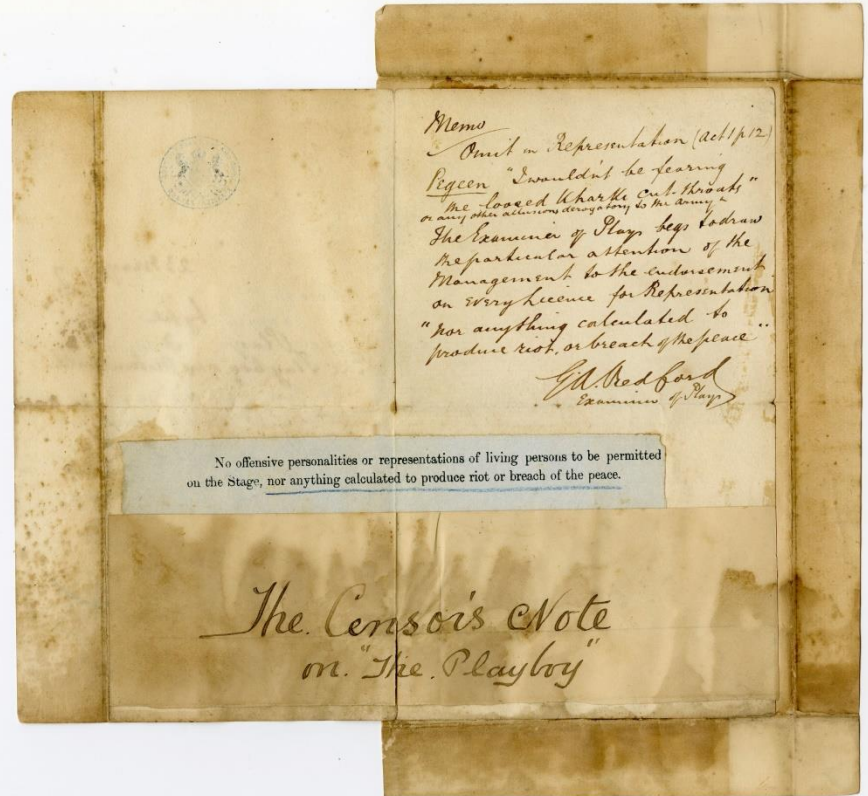 Memo
Omit in Representation (Act 1 p 12)
Pegeen "I wouldn't be fearing
the loosed Kharki cut-throats"
or any other allusions derogatory to the Army "
The Examiner of Plays begs to draw
the particular attention of the
Management to the endorsement
on every Licence for Representation
"nor anything calculated to
produce riot, or breach of the peace"
G.A. Redford
Examiner of Plays
No offensive personalities or representations of living persons to be permitted
on the Stage, nor anything calculated to produce riot or breach of the peace.
The Censor's Note
on "The Playboy"